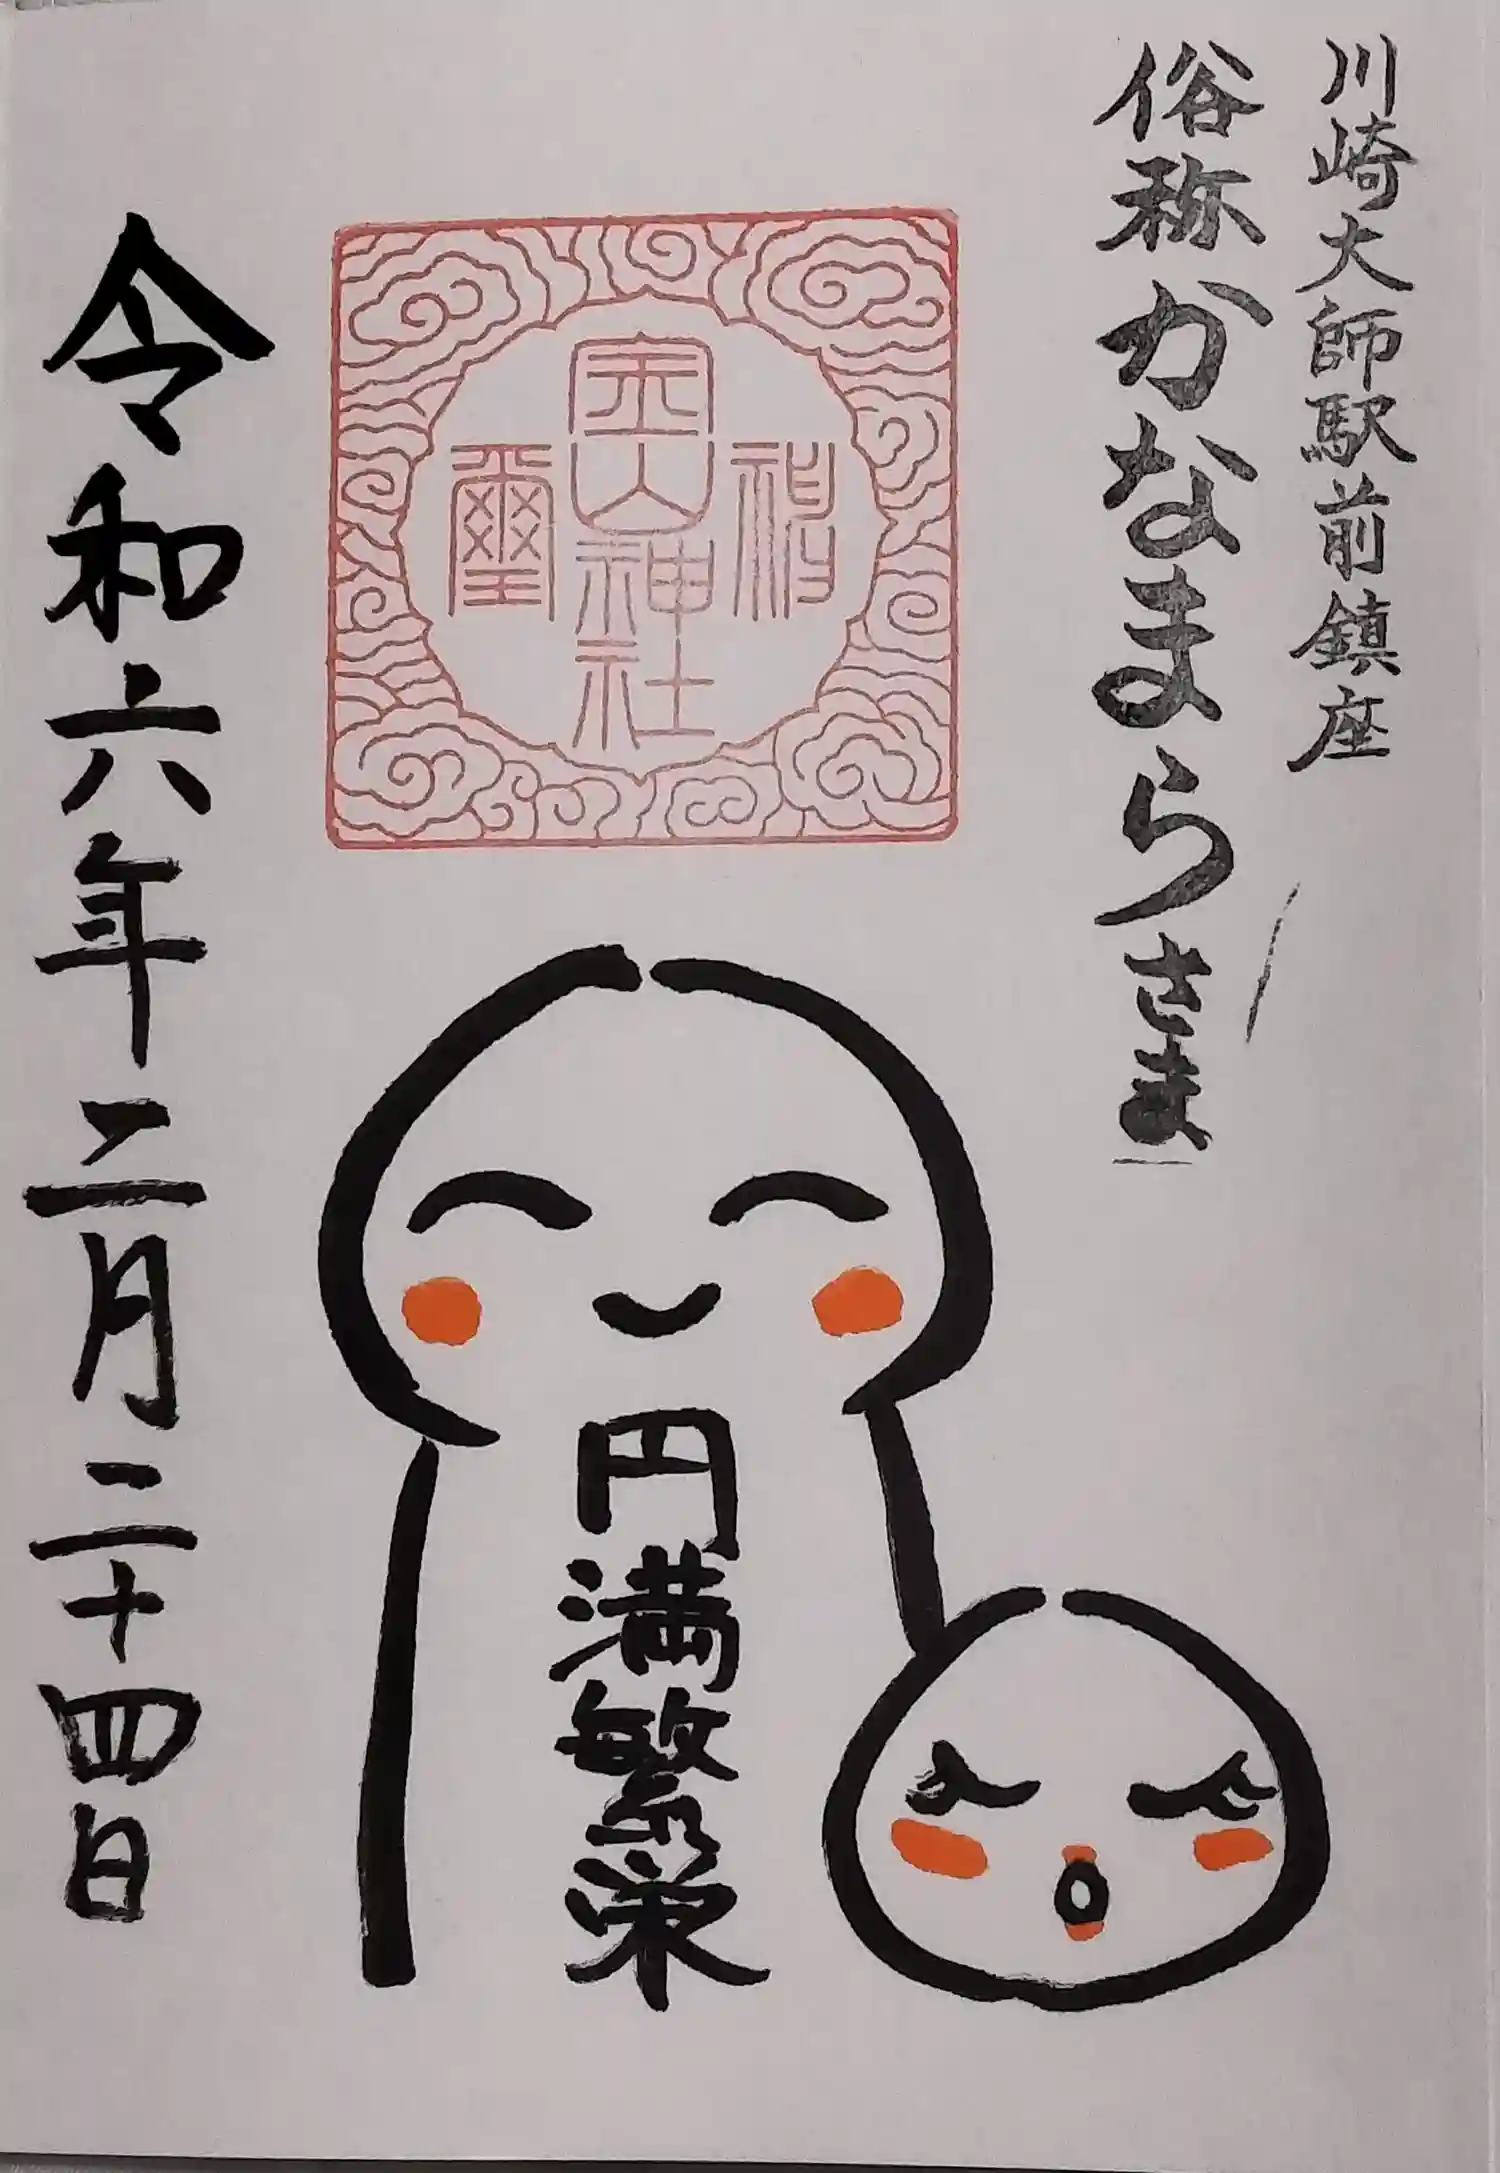 川崎大師駅前鎮座
俗称かなまらさま
金山神社
璽
円満繁栄
令和六年二月二十四日